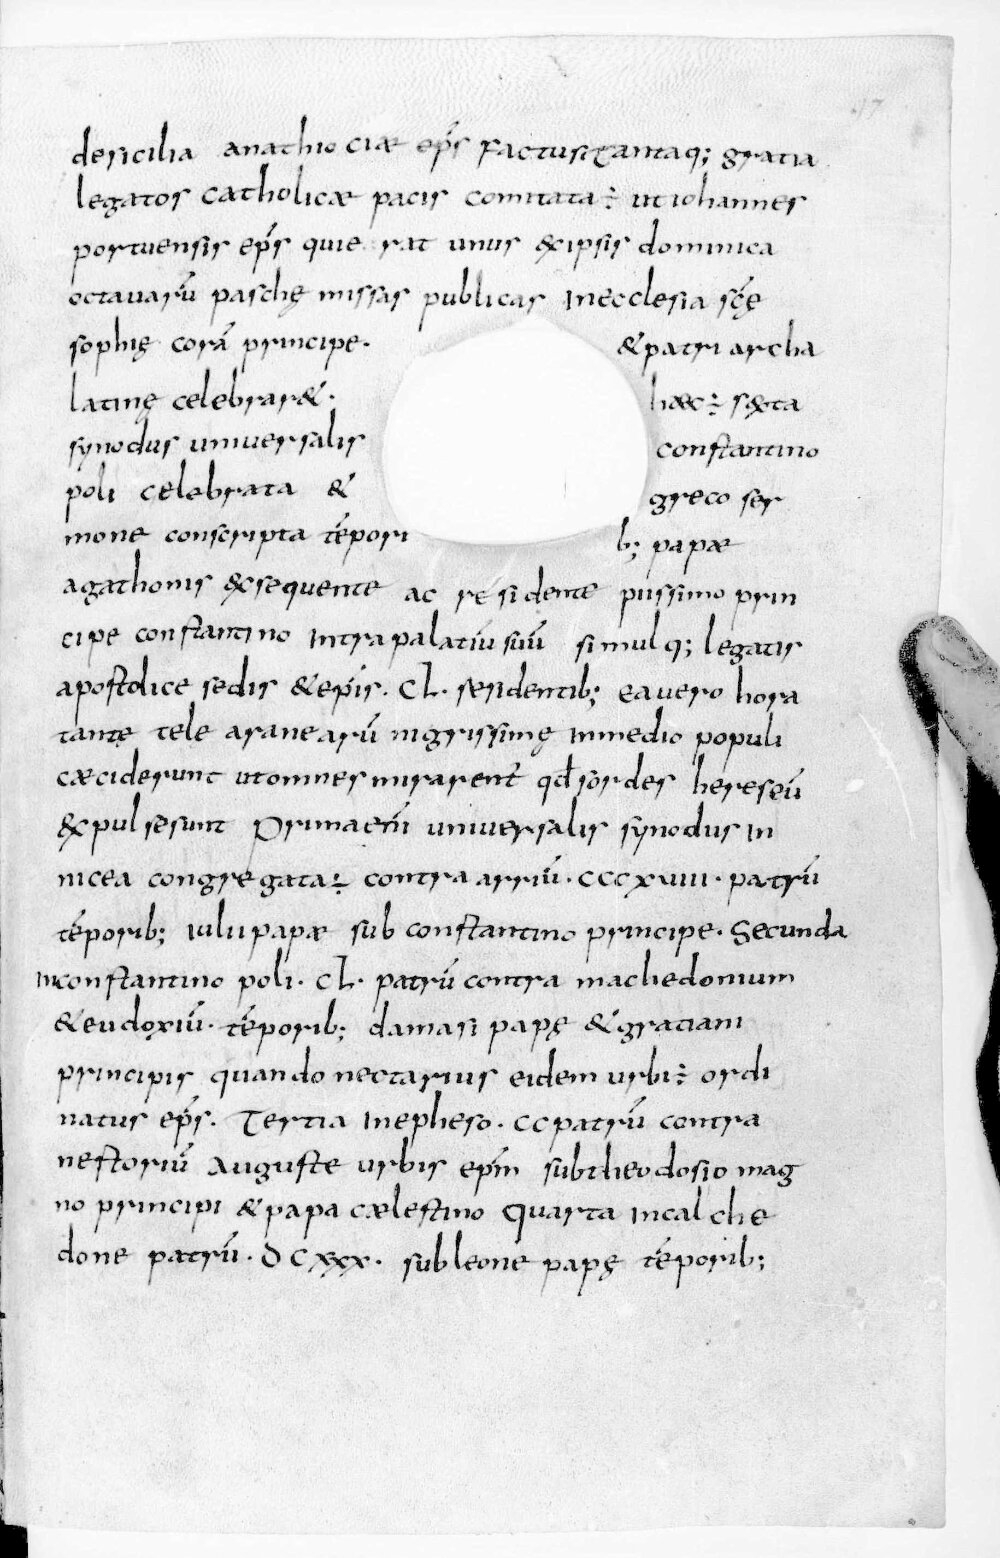 47
desicilia anathiociae ep̄s factus⁊tantaq; gratia
legatos catholicae pacis comitata÷ ut iohannes
portuensis ep̄s quie rat unus &xipsis dominica
octauarū paschę missas publicas inecclesia scę̄
sophię corā principe. & patriarcha
latinę celebrar&. haec÷ s&xta
synodus uniuersalis constantino
poli celebrata & greco ser
mone conscripta tēpori b; papae
agathonis &xsequente ac residente piissimo prin
cipe constantino intrapalatiū suū simulq; legatis
apostolice sedis &ep̄is. CL. sesidentib; eauero hora
tantę tele aranearū nigrissimę inmedio populi
caeciderunt utomnes mirarent̄ qđ sordes hereseū
&xpulsesunt Primaem̄ uniuersalis synodus in
nicea congregata÷ contra arriū. CCCXVIII. patrū
tēporib; iulii papae sub constantino principe. Secunda
inconstantinopoli. CL. patrū contra machedonium
&eudoxiū. tēporib; damasi papę &gratiani
principis quando nectarius eidem urbi÷ ordi
natus ep̄s. Tertia inepheso. CC patrū contra
nestoriū auguste urbis ep̄m subtheodosio mag
no principi & papa caelestino Quarta incalche
done patrū. DCXXX. subleone papę tēporib;